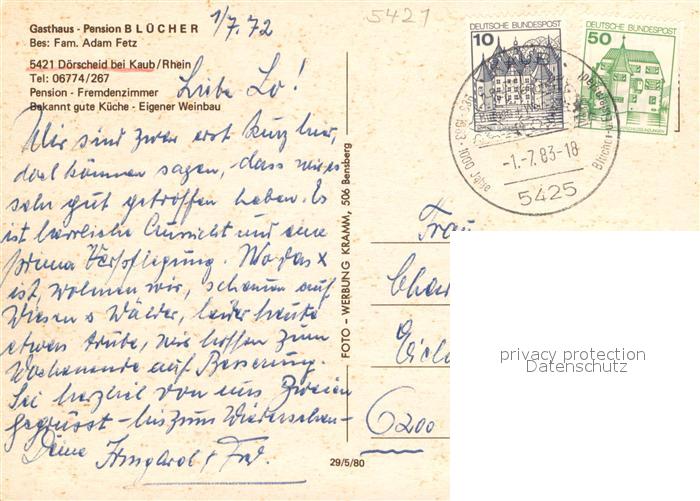 Gasthaus - Pension BLÜCHER
Bes: Fam. Adam Fetz
5421 Dörscheid bei Kaub/Rhein
Tel: 06774/267
Pension - Fremdenzimmer
Bekannt gute Küche - Eigener Weinbau
1/7.72
5421
Liebe Lo!
Wir sind zwar erst kurz hier,
doch können sagen, dass wir es
sehr gut getroffen haben. Es
ist herrliche Aussicht und eine
prima Verpflegung. Wo das x
ist, wohnen wir, schauen auf
Wiesen u Wälder, leider heute
etwas trübe, wir hoffen zum
Wochenende auf Besserung.
Sei herzlich von uns Zweien
gegrüsst - bis zum Wiedersehen -
Deine Irmgard + Fred.
FOTO - WERBUNG KRAMM, 506 Bensberg
29/5/80
DEUTSCHE BUNDESPOST
10
DEUTSCHE BUNDESPOST
50
KAUB
983 - 1000 Jahre
-1.-7.83-18
5425
Frau
6200
privacy protection
Datenschutz